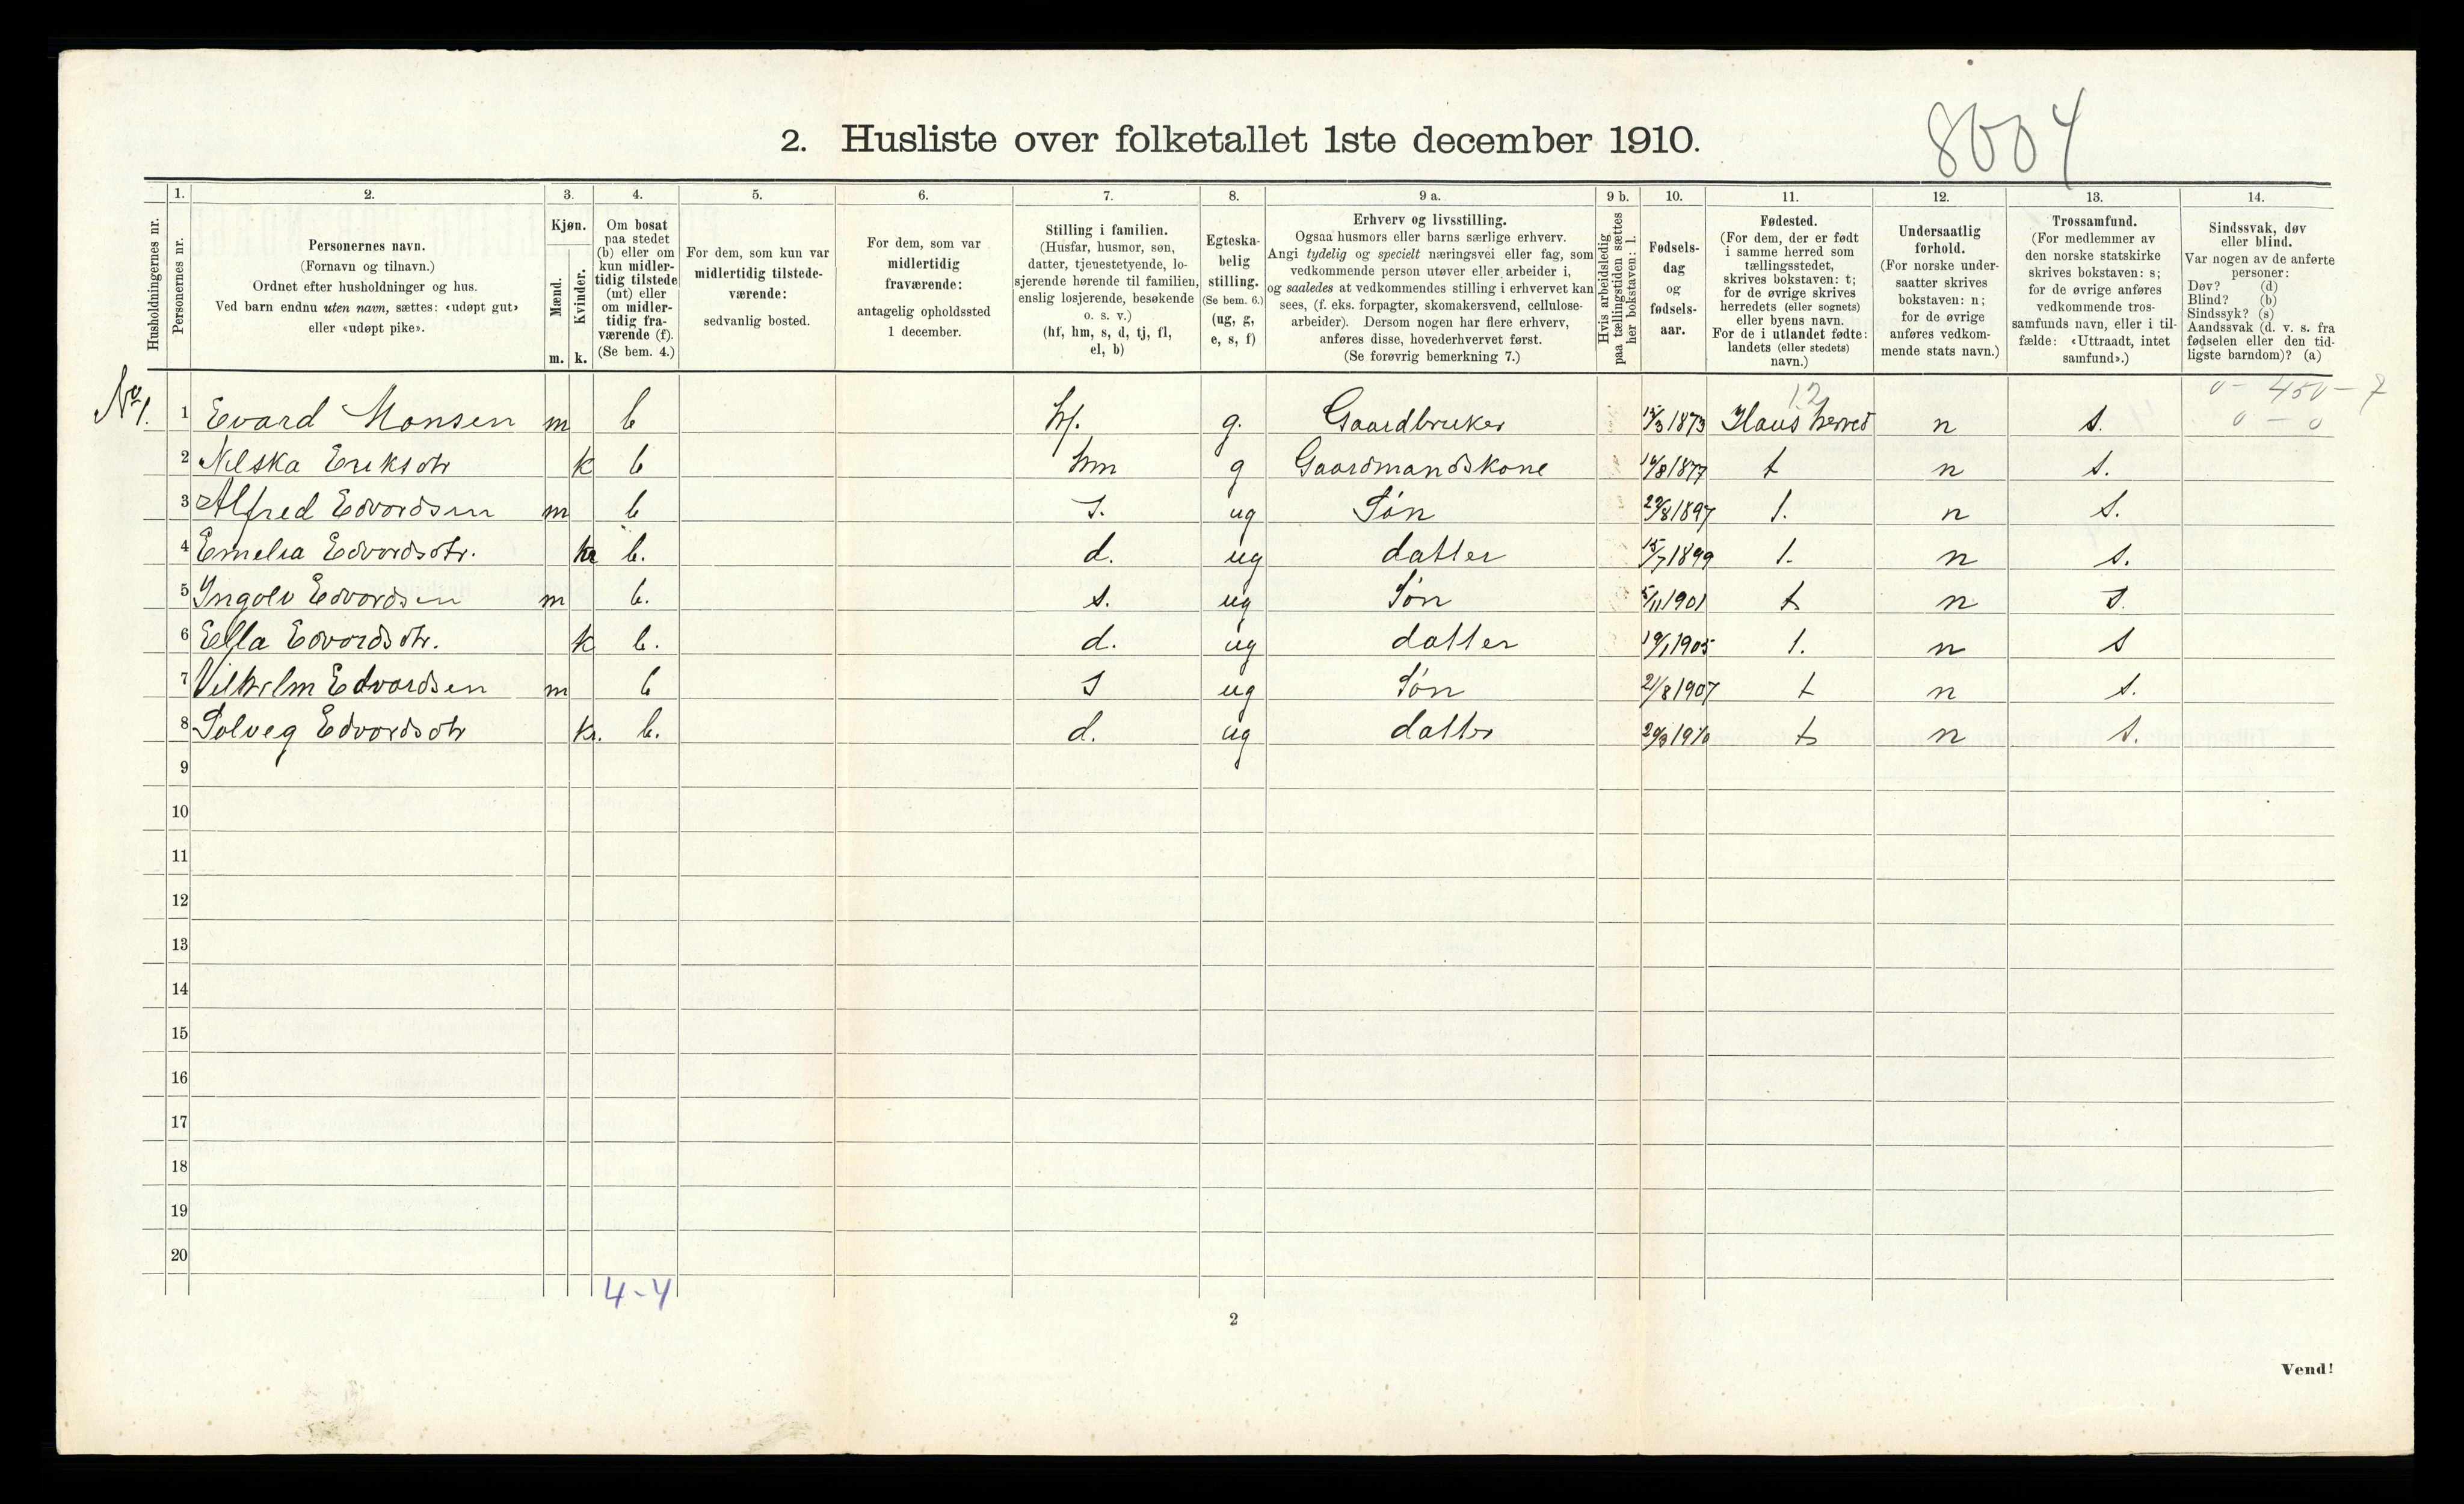 8004
2. Husliste over folketallet 1ste december 1910.
Husholdningernes nr.
1.
Personernes nr.
2.
Personernes navn.
(Fornavn og tilnavn.)
Ordnet efter husholdninger og hus.
Ved barn endnu uten navn, sættes: «udøpt gut»
eller «udøpt pike».
3.
Kjøn.
Mænd.
Kvinder.
m.
k.
4.
Om bosat
paa stedet
(b) eller om
kun midler-
tidig tilstede
(mt) eller
om midler-
tidig fra-
værende (f).
(Se bem. 4.)
5.
For dem, som kun var
midlertidig tilstede-
værende:
sedvanlig bosted.
6.
For dem, som var
midlertidig
fraværende:
antagelig opholdssted
1 december.
7.
Stilling i familien.
(Husfar, husmor, søn,
datter, tjenestetyende, lo-
sjerende hørende til familien,
enslig losjerende, besøkende
o. s. v.)
(hf, hm, s, d, tj, fl,
el, b)
8.
Egteska-
belig
stilling.
(Se bem. 6.)
(ug, g,
e, s, f)
9 a.
Erhverv og livsstilling.
Ogsaa husmors eller barns særlige erhverv.
Angi tydelig og specielt næringsvei eller fag, som
vedkommende person utøver eller arbeider i,
og saaledes at vedkommendes stilling i erhvervet kan
sees, (f. eks. forpagter, skomakersvend, cellulose-
arbeider). Dersom nogen har flere erhverv,
anføres disse, hovederhvervet først.
(Se forøvrig bemerkning 7.)
9 b.
Hvis arbeidsledig
paa tællingstiden sættes
her bokstaven: l.
10.
Fødsels-
dag
og
fødsels-
aar.
11.
Fødested.
(For dem, der er født
i samme herred som
tællingsstedet,
skrives bokstaven: t;
for de øvrige skrives
herredets (eller sognets)
eller byens navn.
For de i utlandet fødte:
landets (eller stedets)
navn.)
12.
Undersaatlig
forhold.
(For norske under-
saatter skrives
bokstaven: n;
for de øvrige
anføres vedkom-
mende stats navn.)
13.
Trossamfund.
(For medlemmer av
den norske statskirke
skrives bokstaven: s;
for de øvrige anføres
vedkommende tros-
samfunds navn, eller i til-
fælde: «Uttraadt, intet
samfund».)
14.
Sindssvak, døv
eller blind.
Var nogen av de anførte
personer:
Døv? (d)
Blind? (b)
Sindssyk? (s)
Aandssvak (d. v. s. fra
fødselen eller den tid-
ligste barndom)? (a)
12
0 - 450 - 7
0 - 0
No 1. 1 Evard Monsen m b hf. g. Gaardbruker 15/3 1873 Haus herred n s.
2 Nilska Eriksdtr k b hm g Gaardmandskone 1877 t n s.
3 Alfred Edvardsen m b s. ug Søn 29/8 1897 t. n s.
4 Emelia Edvardsdtr. k b. d. ug datter 15/7 1899 t. n s.
5 Ingolv Edvardsen m b. s. ug Søn 5/11 1901 t n s.
6 Ella Edvardsdtr. k b. d. ug datter 19/1 1905 t. n s
7 Vilhelm Edvardsen m b s ug Søn 21/8 1907 t n s.
8 Solveg Edvardsdtr k. b. d. ug datter 1910 t n s.
9
10
11
12
13
14
15
16
17
18
19
20
4-4
2
Vend!